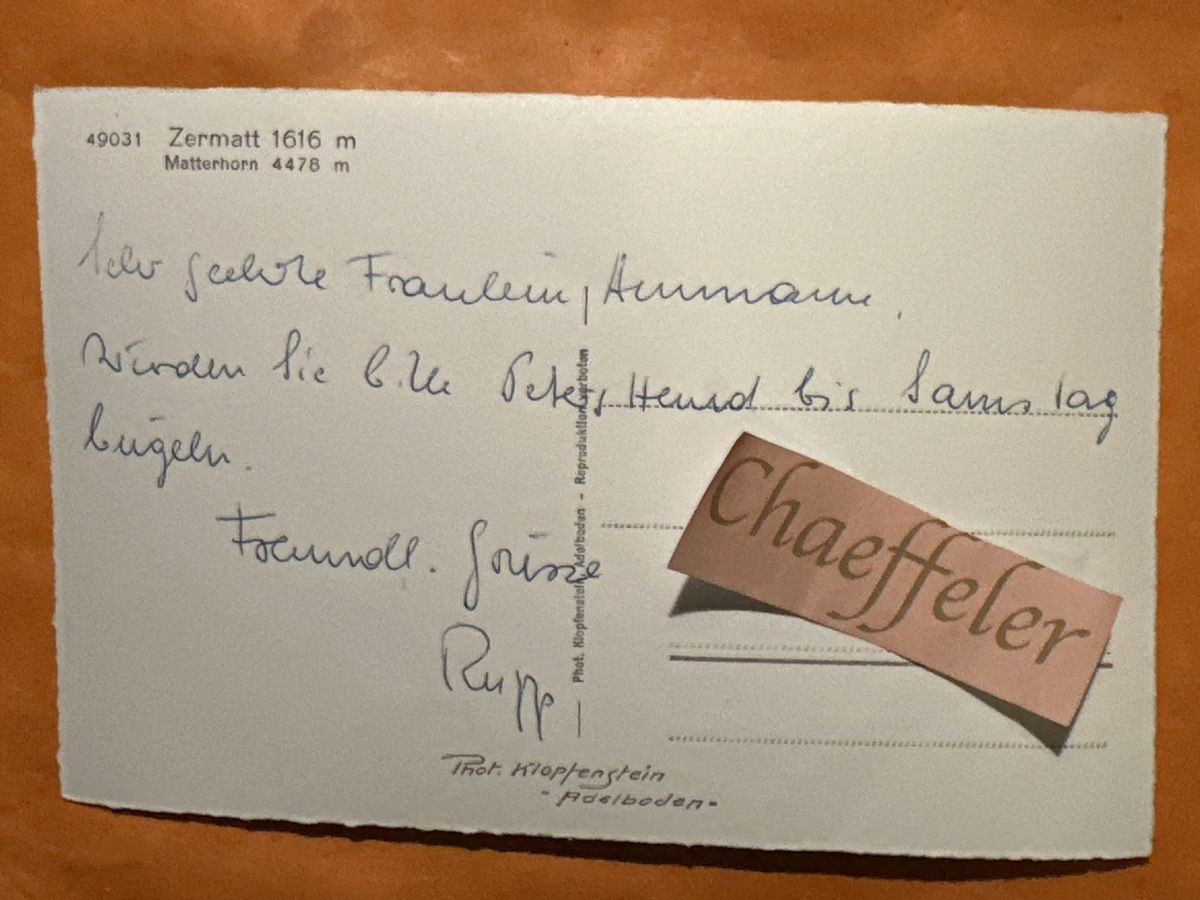 49031 Zermatt 1616 m
Matterhorn 4478 m
Sehr geehrte Fräulein Ammann.
Würden Sie bitte Peters Hemd bis Samstag
bügeln.
Freundl. Grüsse
Rupp
Phot. Klopfenstein, Adelboden - Reproduktion verboten
Phot. Klopfenstein
- Adelboden -
Chaeffeler